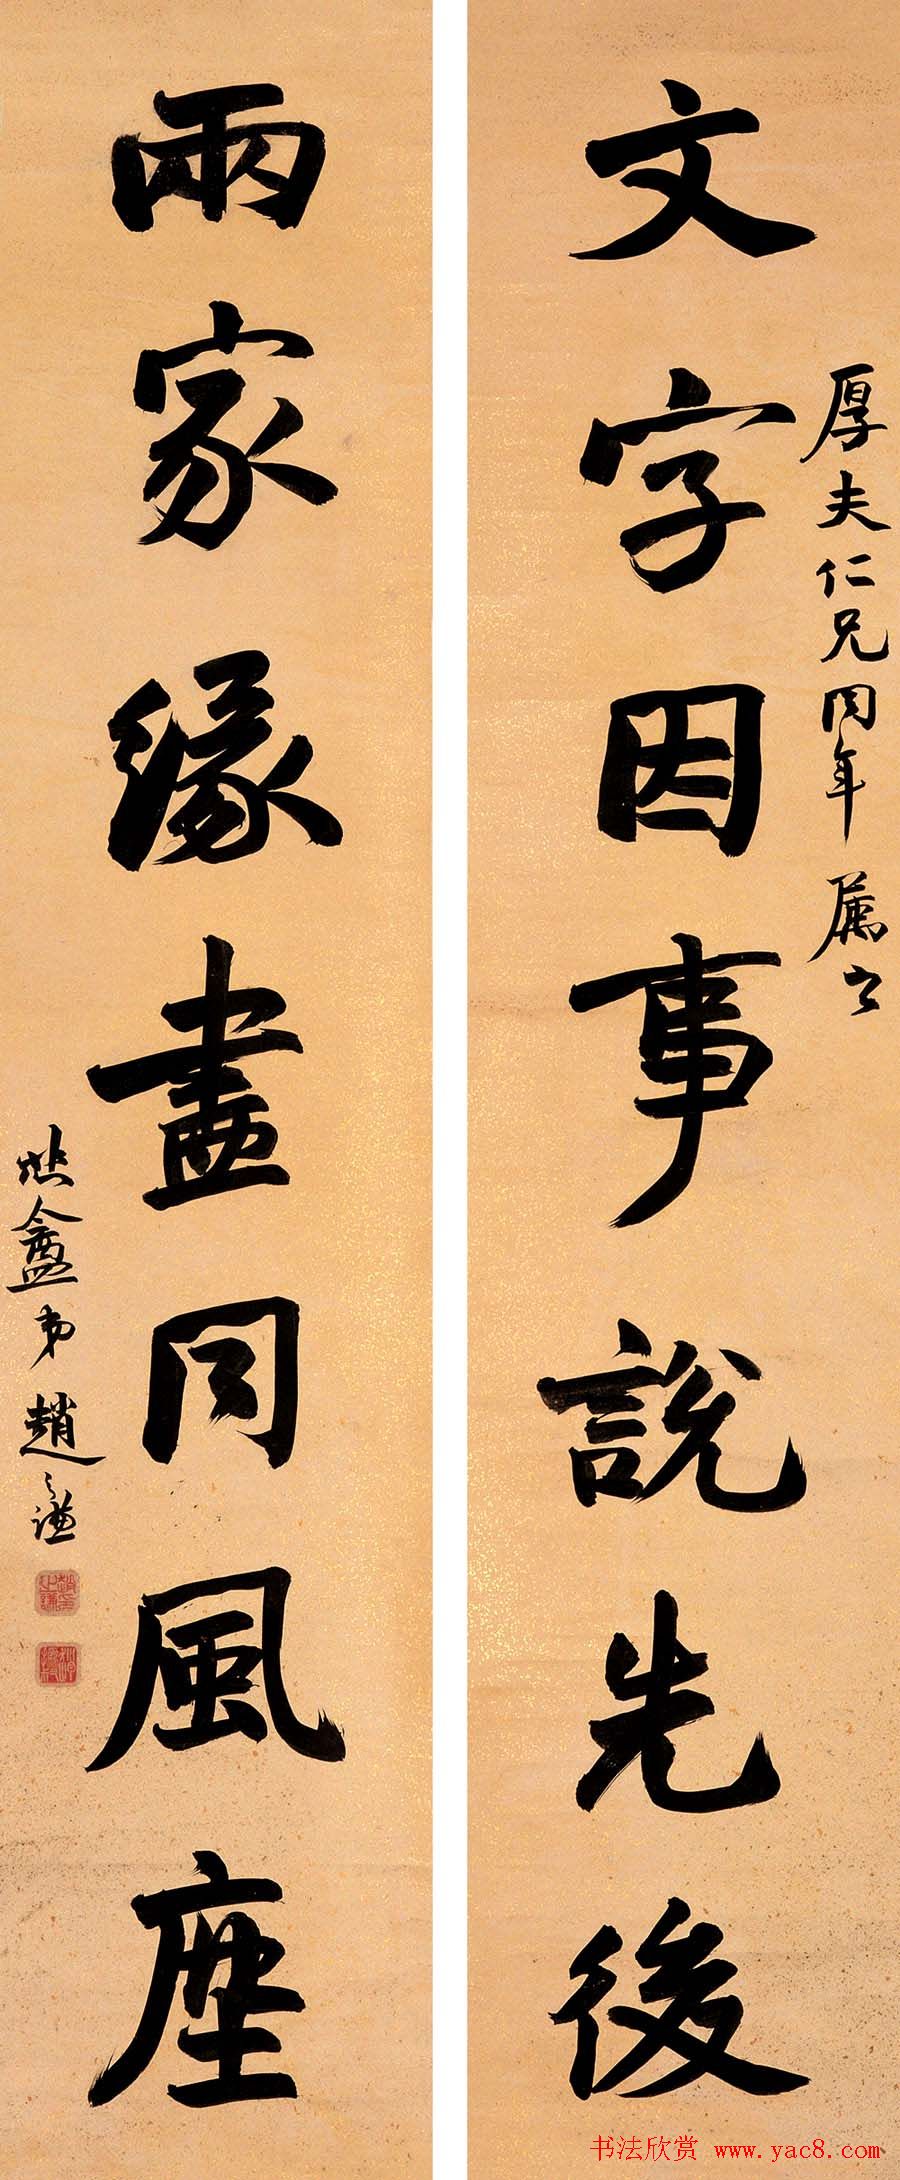 厚夫仁兄同年屬書
文字因事說先後
兩家緣盡同風塵
悲盦弟趙之謙
趙之謙印
书法欣赏 www.yac8.com